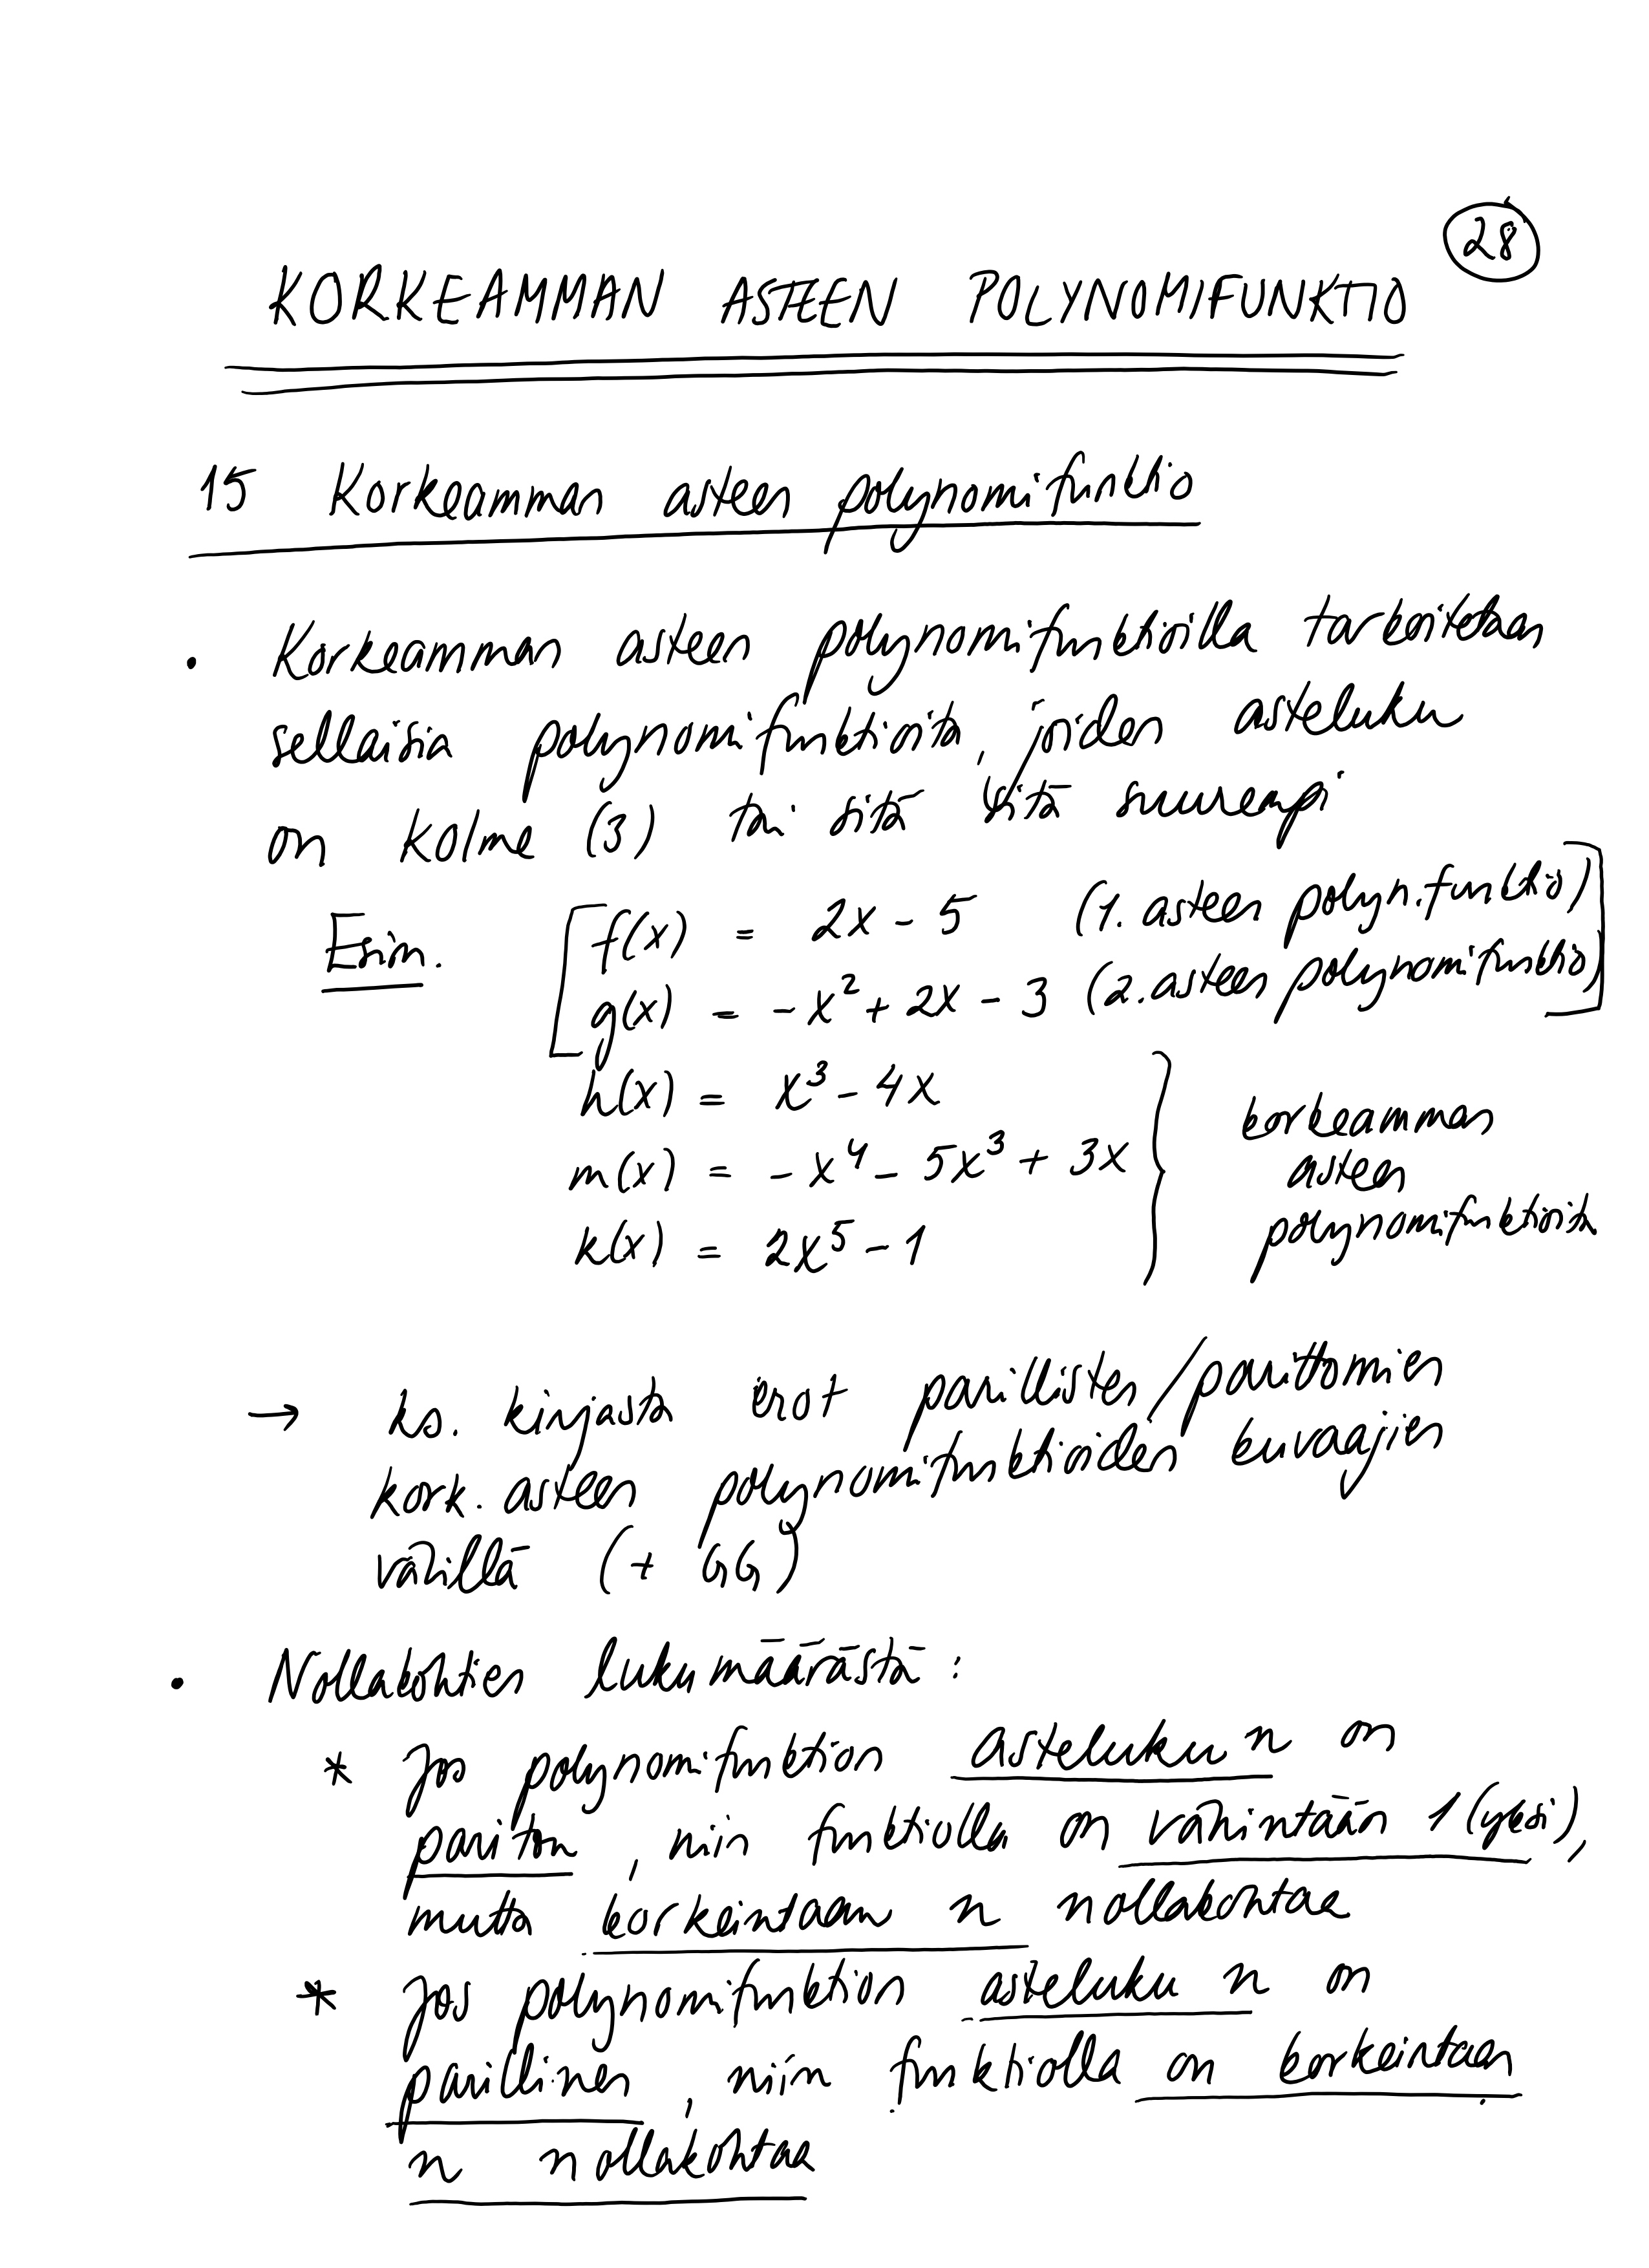 28
KORKEAMMAN ASTEEN POLYNOMIFUNKTIO
15 Korkeamman asteen polynomifunktio
• Korkeamman asteen polynomifunktioilla tarkoitetaan
sellaisia polynomifunktioita, joiden asteluku
on kolme (3) tai sitä sitä suurempi
Esim. [ f(x) = 2x - 5 (1. asteen polyn.funktio)
g(x) = -x² + 2x - 3 (2. asteen polynomifunktio) ]
h(x) = x³ - 4x
m(x) = -x⁴ - 5x³ + 3x } korkeamman asteen polynomifunktioita
k(x) = 2x⁵ - 1
→ ks. kirjasta erot parillisten/parittomien
kork. asteen polynomifunktioiden kuvaajien
välillä (+ GG)
• Nollakohtien lukumäärästä:
* Jos polynomifunktion asteluku n on
pariton, niin funktiolla on vähintään 1 (yksi),
mutta korkeintaan n nollakohtaa
* Jos polynomifunktion asteluku n on
parillinen, niin funktiolla on korkeintaan
n nollakohtaa